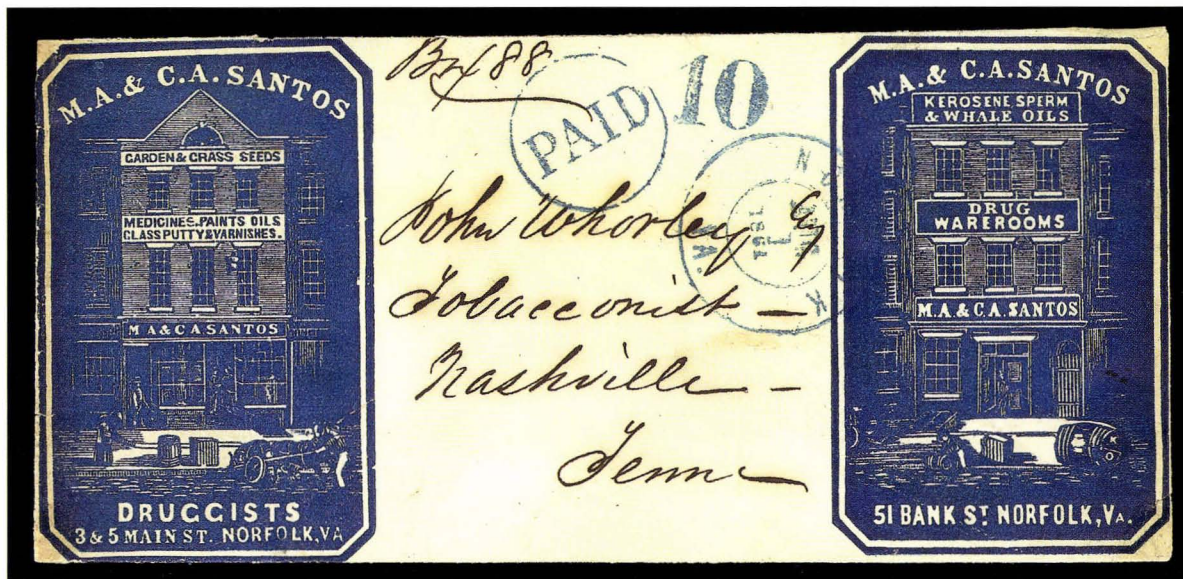 M.A. & C.A. SANTOS
GARDEN & GRASS SEEDS
MEDICINES, PAINTS OILS
GLASS PUTTY & VARNISHES.
M A & C A SANTOS
DRUGGISTS
3 & 5 MAIN ST. NORFOLK, VA
Box 88
PAID
10
John Whorley
Tobacconist —
Nashville —
Tenn
1861
M.A. & C.A. SANTOS
KEROSENE SPERM
& WHALE OILS
DRUG
WAREROOMS
M.A. & C.A. SANTOS
51 BANK ST NORFOLK, VA.